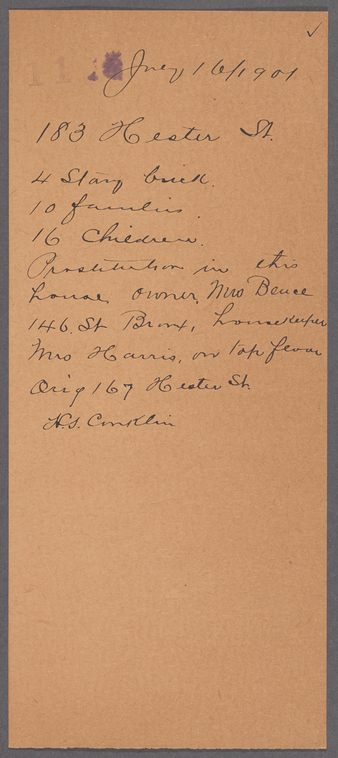 ✓
July 16/1901
183 Hester St.
4 Story brick.
10 families.
16 Children.
Prostitution in this
house, owner, Mrs
146. St Bronx, housekeeper
Mrs Harris, on top floor
Orig 167 Hester St
H.S. Conklin